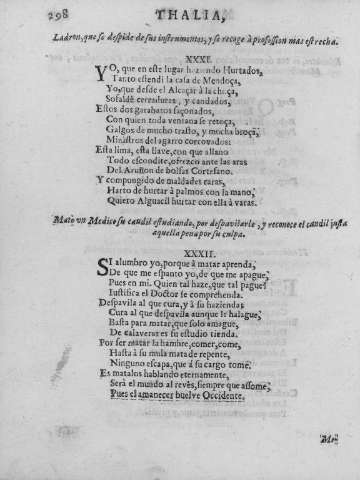 298 THALIA,
Ladron, que se despide de sus instrumentos, y se recoge à profession mas estrecha.
XXXI.
YO, que en este lugar haziendo Hurtados,
Tanto estendi la casa de Mendoça,
Yo, que desde el Alcaçar à la choça,
Sofaldè cerraduras, y candados,
Estos dos garabatos façonados,
Con quien toda ventana se retoça,
Galgos de mucho trasto, y mucha broça,
Ministros del agarro corcovados:
Esta lima, esta llave, con que allano
Todo escondite, ofrezco ante las aras
Del Aruñon de bolsas Cortesano.
Y compungido de maldades caras,
Harto de hurtar à palmos con la mano,
Quiero Alguacil hurtar con ella à varas.
Matò un Medico su candil estudiando, por despavilarle, y reconece el candil justa
aquella pena por su culpa.
XXXII.
SI alumbro yo, porque à matar aprenda,
De que me espanto yo, de que me apague,
Pues en mi. Quien tal haze, que tal pague?
Iustifica el Doctor se comprehenda.
Despavila al que cura, y à su hazienda
Cura al que despavila aunque le halague,
Basta para matar, que solo amague,
De calaveras es su estudio tienda.
Por ser matar la hambre, comer, come,
Hasta à su mula mata de repente,
Ninguno escapa, que à su cargo tome.
Es matalos hablando eternamente,
Serà el mundo al revès, siempre que assome,
Pues el amanecer buelve Occidente.